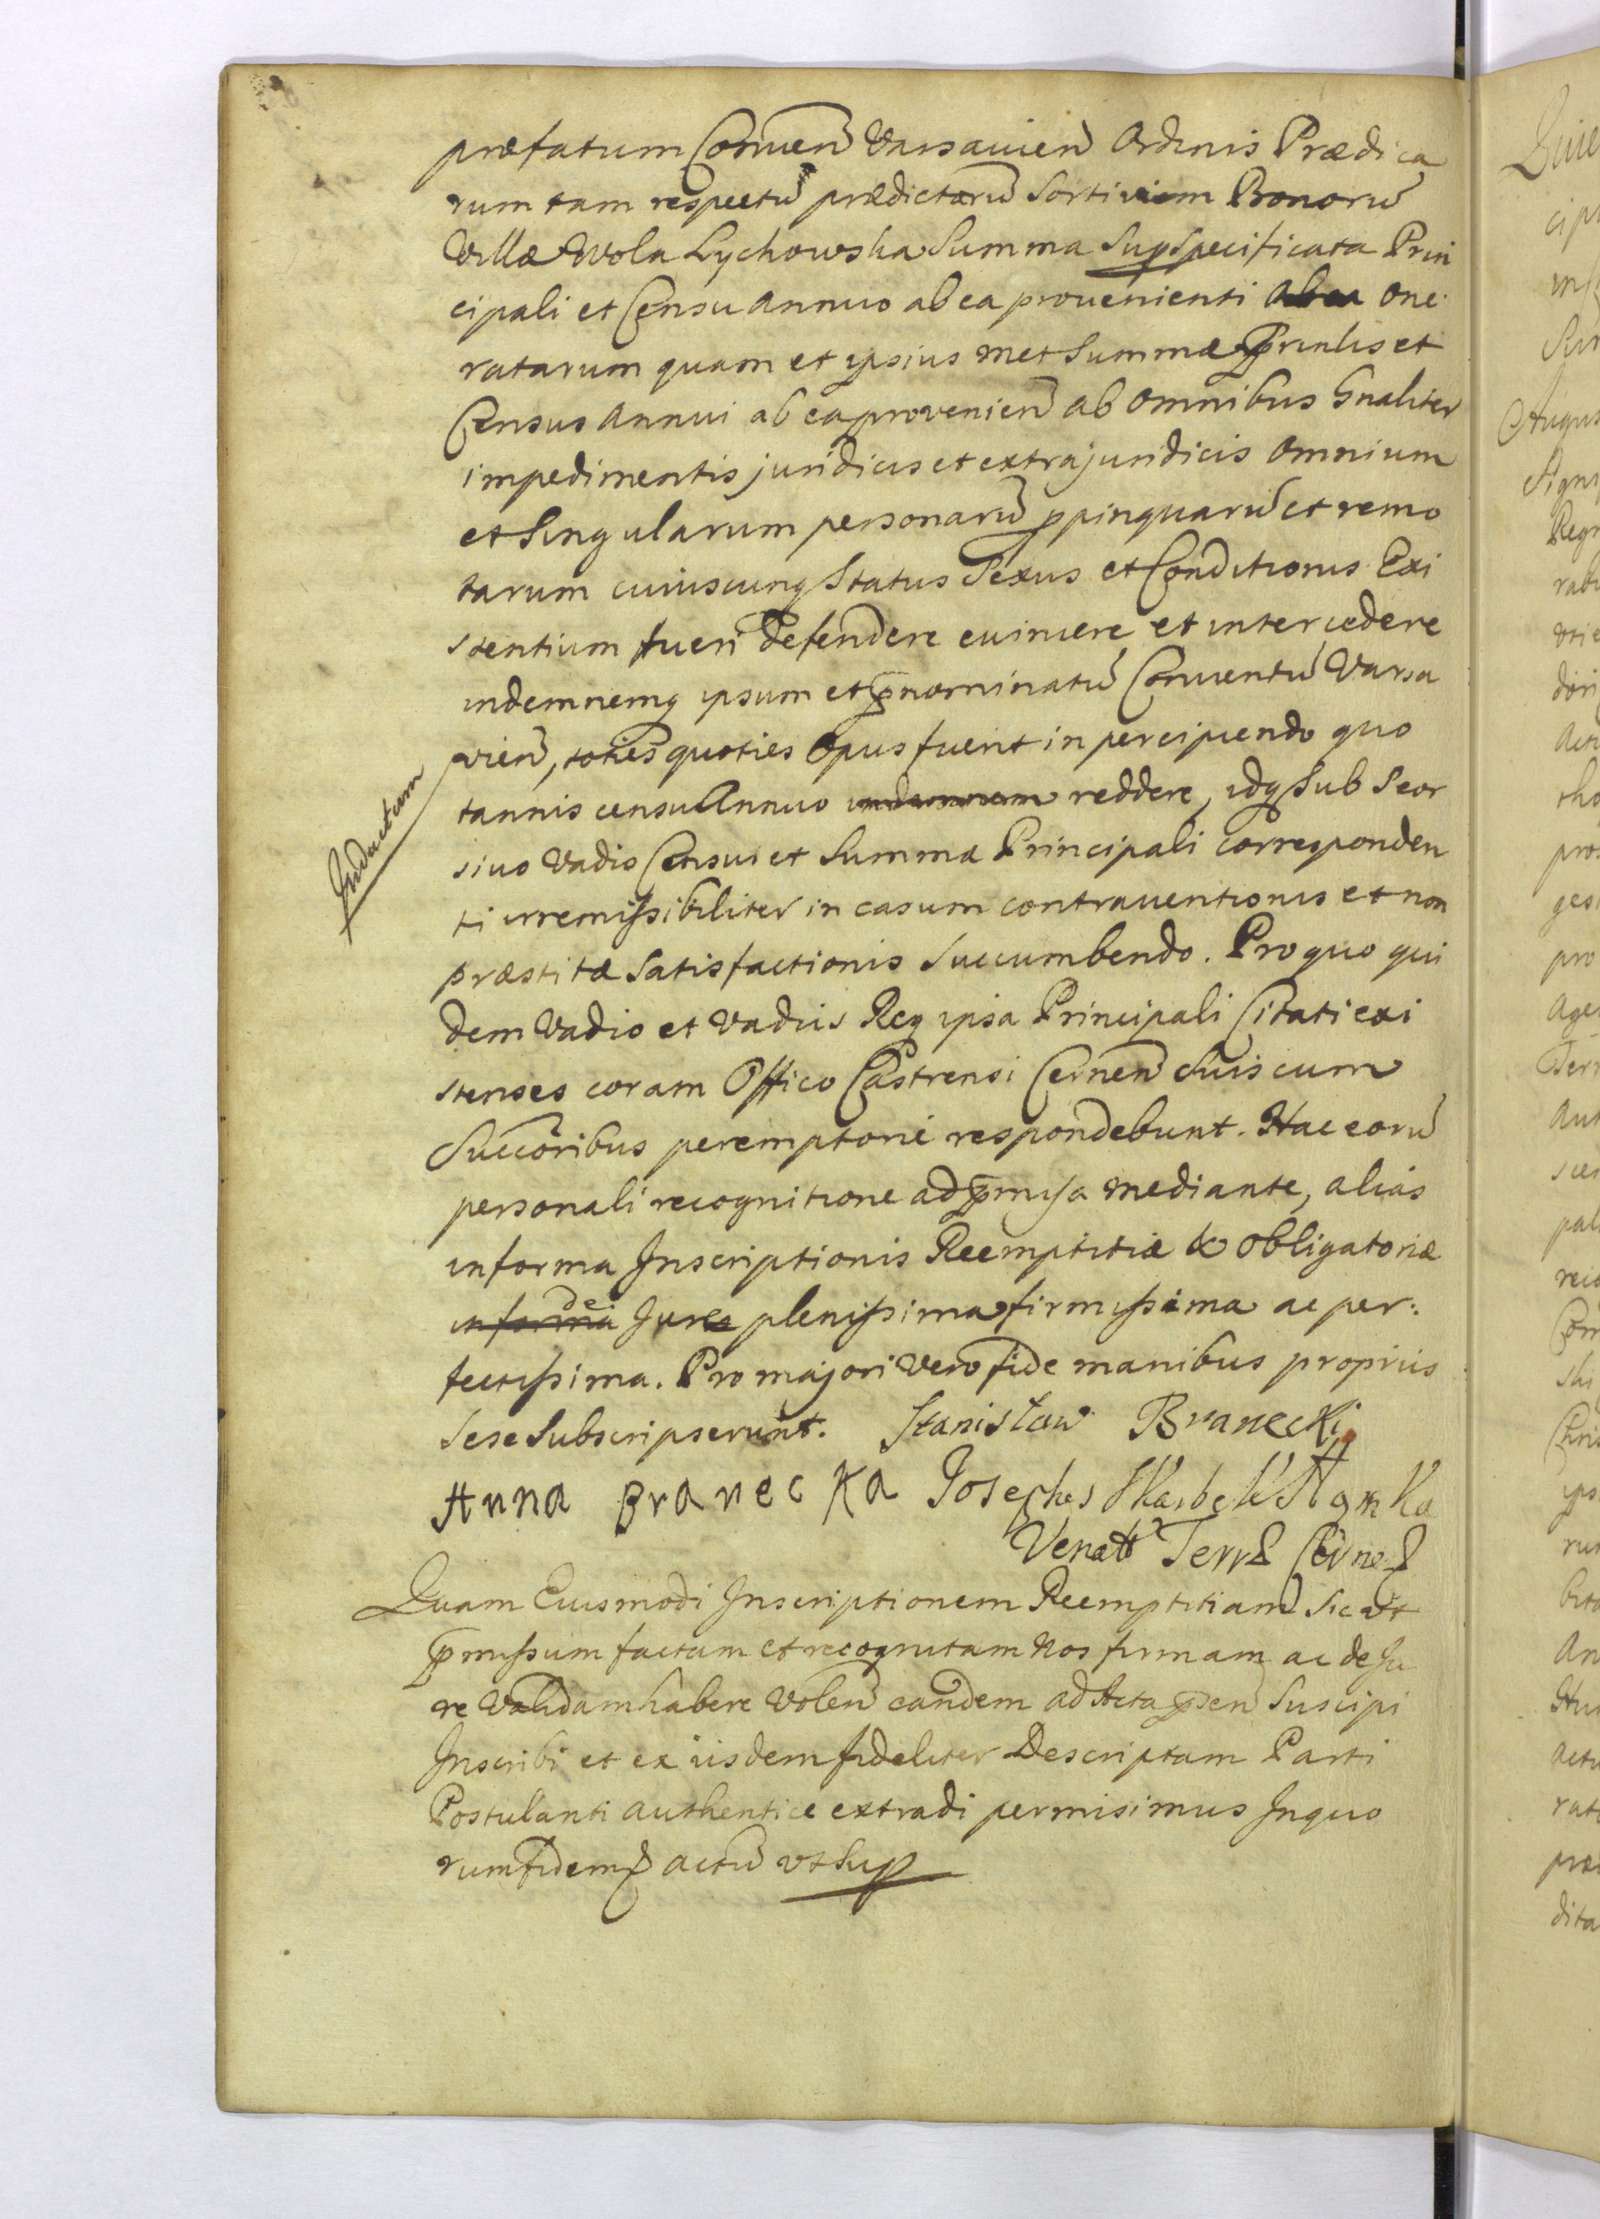 præfatum Conuen̄ Varsauien̄ Ordinis Prædica
rum tam respectū prædictarū Sortivm Bonorū
Villæ Wola Lychowska Summa Sup Specificata Prin
cipali et Censu Annuo ab ea prouenienti ab ea One
ratarum quam et ipsius met Summæ Prinlis et
Census Annui ab ea provenien̄ ab Omnibus Gnaliter
impedimentis juridicis et extrajuridicis Omnium
et Singularum personarū ppinquarū et remo
tarum cuiuscunq Status Sexus et Conditionis Exi
stentium tueri defendere euincere et intercedere
indemnemq ipsum et pnominatū Conuentū Varsa
vien̄, toties quoties Opus fuerit in percipiendo quo
tannis censu Annuo indemnem reddere, idq Sub Seor
sivo Vadio Censui et Summa Principali corresponden
ti irremissibiliter in casum contrauentionis et non
præstitæ Satisfactionis Succumbendo. Pro quo qui
dem Vadio et Vadiis Req ipsa Principali Citati exi
stenses coram Offico Castrensi Cernen̄ Suis cum
Succoribus peremptorie respondebunt. Hac eorū
personali recognitione ad pmisa mediante, alias
in forma Inscriptionis Reemptitiæ & obligatoriæ
in forma de Jure plenissima firmissima ac per:
fectissima. Pro majori Vero fide manibus propriis
Sese Subscripserunt. Stanisław Branecki
Anna Branecka Josephus Skarbek
Venatt Terræ Cernen
Inductum
Quam Eiusmodi Inscriptionem Reemptitiam Sic ut
pmissum factam et recognitam Nos firmam ac de Ju
re Validam habere Volen̄ eandem ad Acta psen̄ Suscipi
Inscribi et ex iisdem fideliter Descriptam Parti
Postulanti authentice extradi permisimus Inquo
rum fidem actū vt Sup